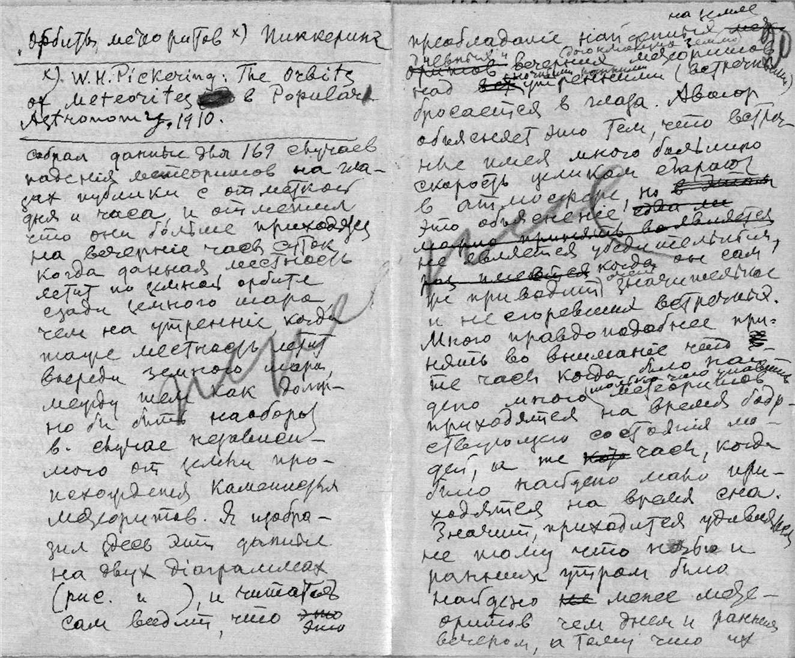 „Орбиты метеоритов х) Пиккеринг
х). W.H. Pickering: The Orbits
of Meteorites в Popular
Astronomy, 1910.
собрал данные для 169 случаев
падения метеоритов на гла-
зах публики с отметкой
дня и часа, и отметил
что они больше приходятся
на вечерние часы суток
когда данная местность
летит по земной орбите
сзади земного шара
чем на утренние, когда
та же местность летит
впереди земного шара,
между тем как долж-
но бы быть наоборот
в случае независи-
мого от земли про-
исхождения каменистых
метеоритов. Я изобра-
зил здесь эти данные
на двух діаграммах
(рис. и ), и читатель
сам видит, что это
на земле
преобладание найденных
дневных вечерних метеоритов
над утренними (встречными)
бросается в глаза. Автор
объясняет это тем, что встреч-
ные имея много большую
скорость целиком сгорают
в атмосфере, но
это объяснение, едва ли
можно принять
не является убедительным,
раз имеются когда он сам,
же приводит значительное
и не сгоревших встречных.
Много правдоподобнее при-
нять во внимание что
те часы когда было най-
дено много только что упавших метеоритов
приходятся на время бодр-
ствующего состояния лю-
дей, а те часы, когда
было найдено мало при-
ходятся на время сна.
Значит, приходится удивляться
не тому что ночью и
ранним утром было
найдено менее мете-
оритов чем днем и ранним
вечером, а тому что их